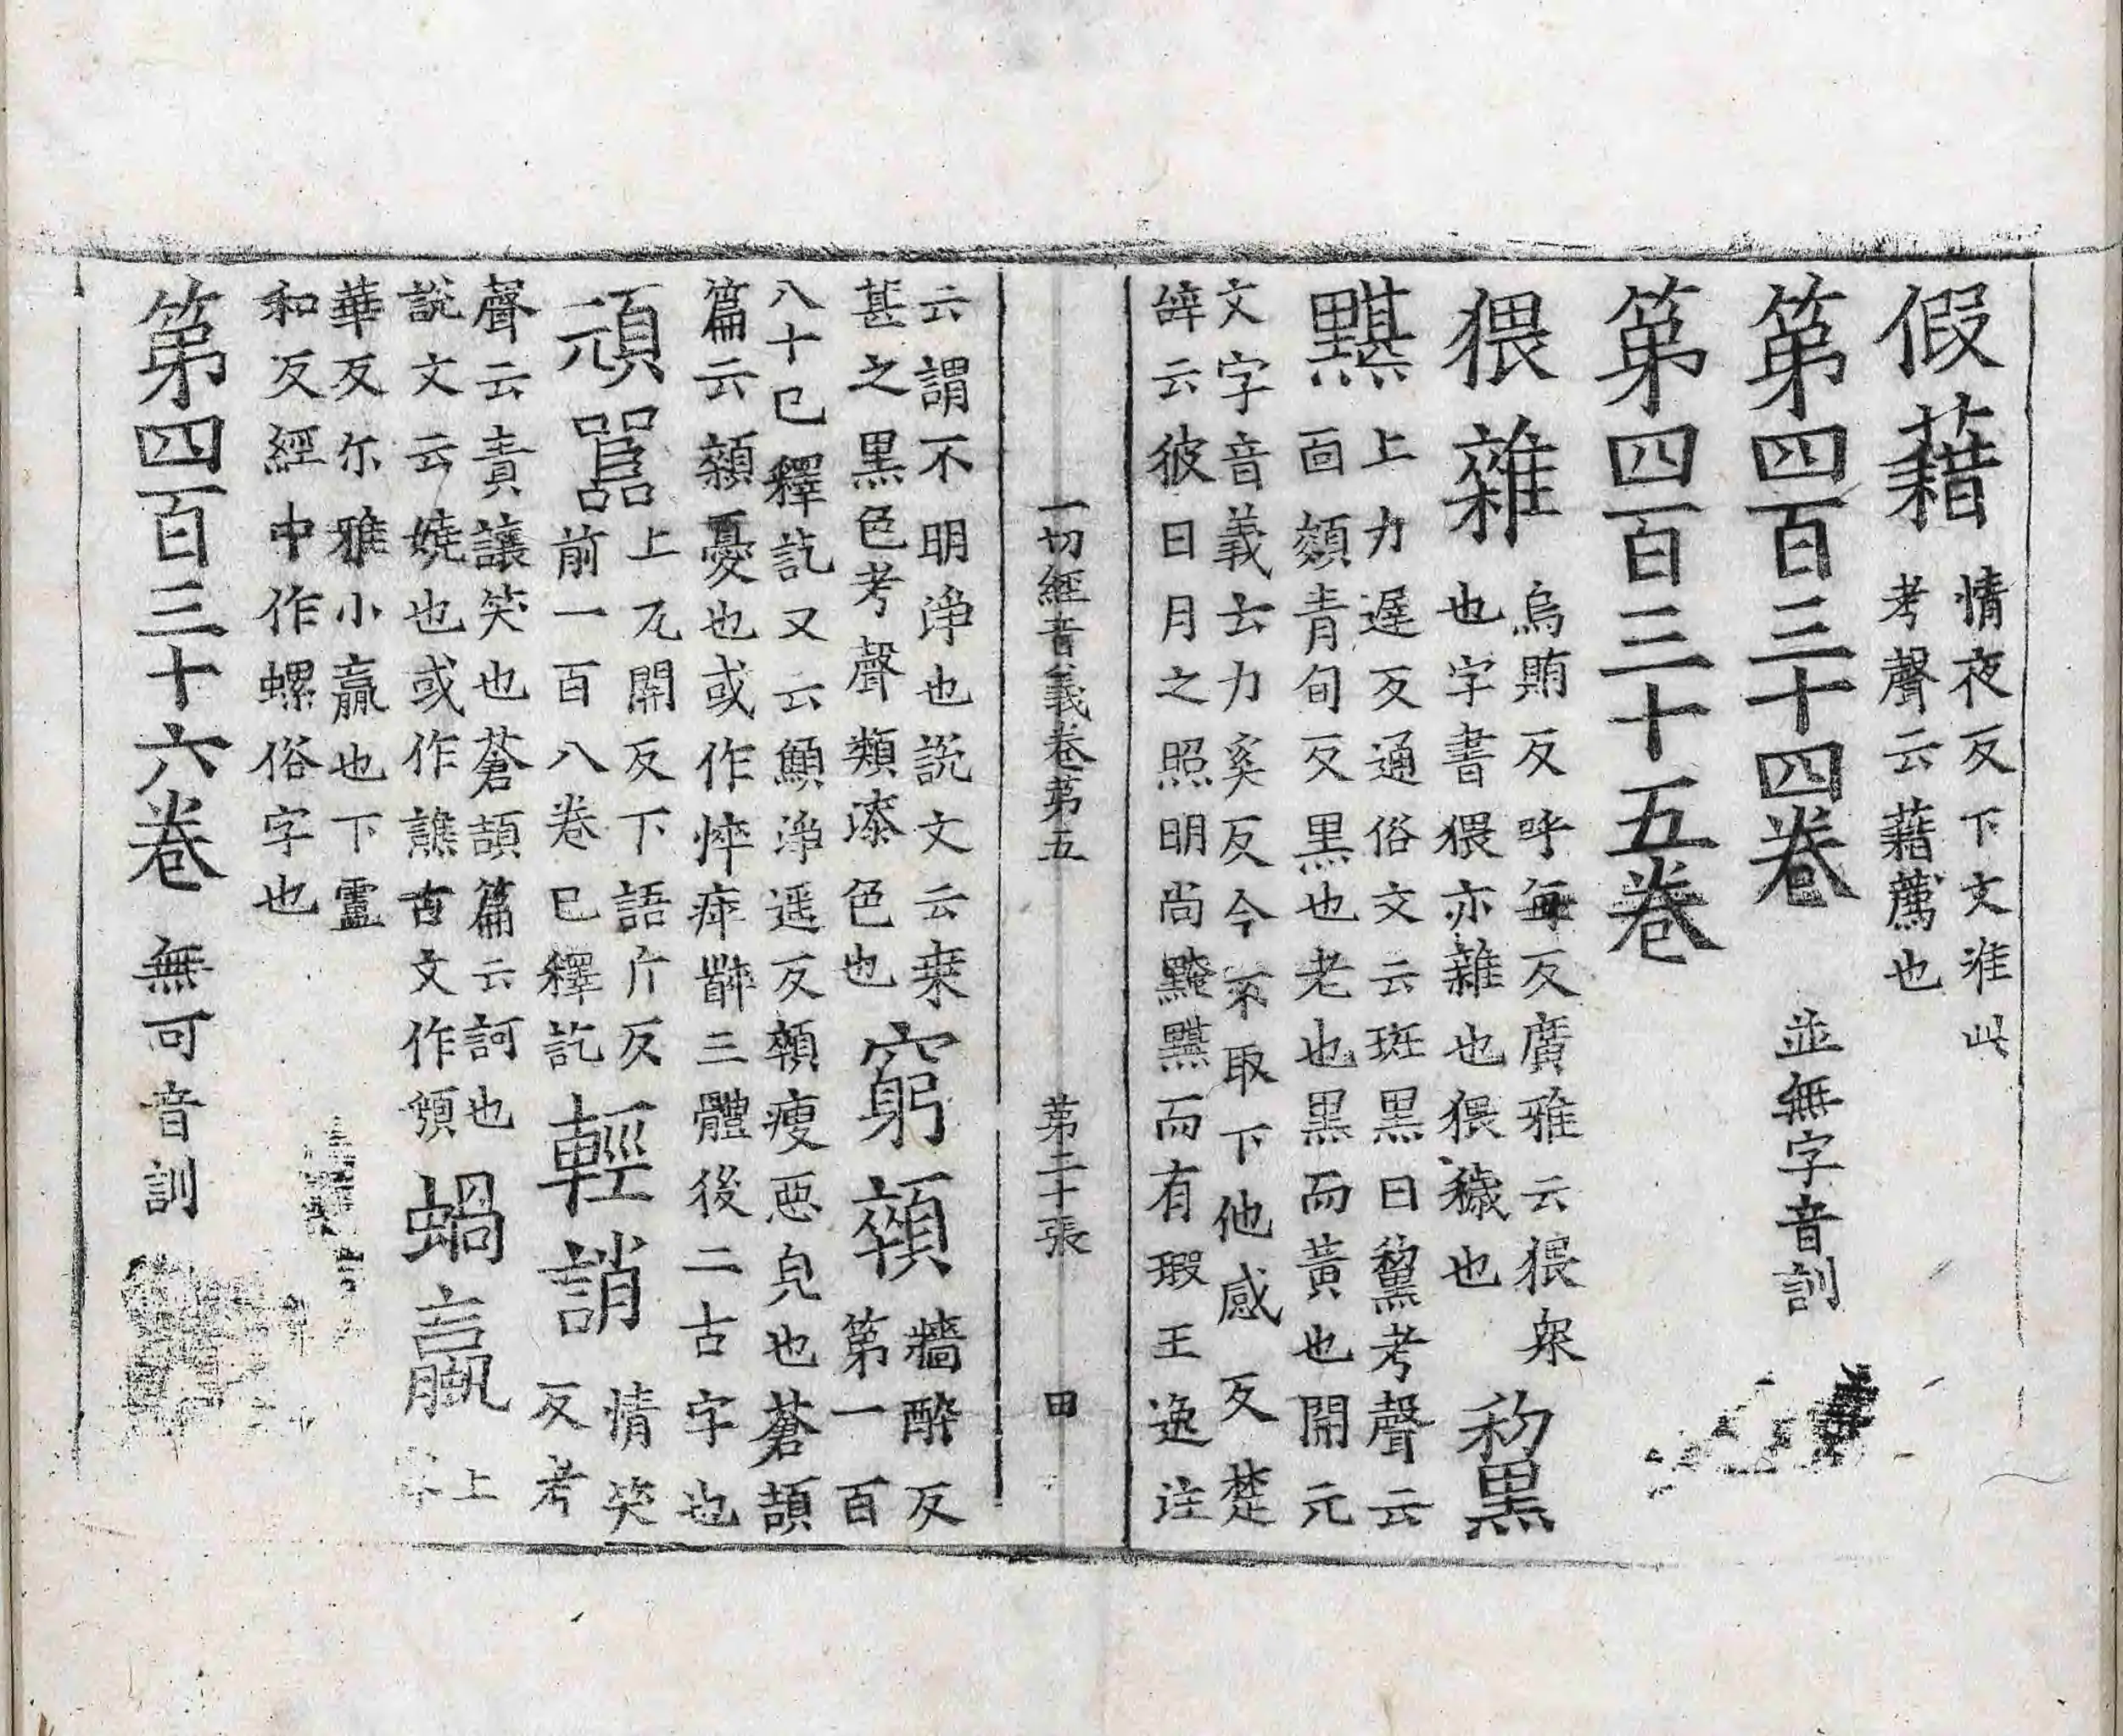 假藉情夜反下文准此
考聲云藉薦也
第四百三十四卷
第四百三十五卷並無字音訓
猥雜烏賄反呼每反廣雅云猥衆
也字書猥亦雜也猥穢也黎黑
黮上力遲反通俗文云斑黑曰黧考聲云
面纇青旬反黑也老也黑而黃也開元
文字音義古力奚反今不取下他感反楚
辝云彼日月之照明尚黤黮而有瑕王逸注
一切經音義卷第五 第二十張 田
云謂不明淨也説文云桒
甚之黑色考聲類深色也窮顇牆酔反
第一百
八十已釋訖又云顦淨遥反顇瘦惡皃也蒼頡
篇云顇憂也或作悴瘁䯿三體後二古字也
頑嚚上兀關反下語斤反
前一百八卷已釋訖輕誚情笑
反考
聲云責讓笑也蒼頡篇云訶也
説文云嬈也或作譙古文作䫞蝸蠃上
華反尒雅小蠃也下盧
和反經中作螺俗字也
第四百三十六卷無可音訓